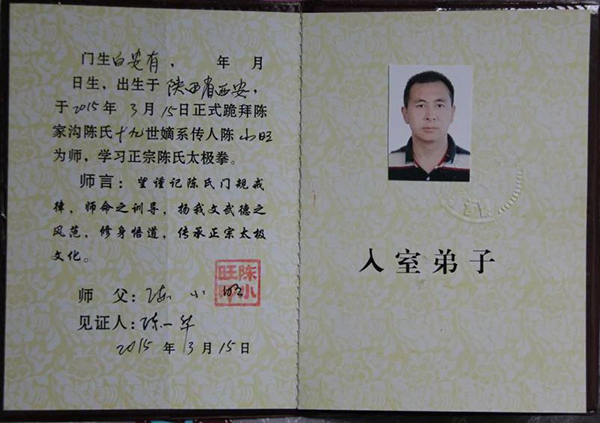 门生白安有， 年 月
日生，出生于 陕西省西安，
于2015年 3月 15日正式跪拜陈
家沟陈氏十九世嫡系传人陈小旺
为师，学习正宗陈氏太极拳。
师言：望谨记陈氏门规戒
律，师命之训导，扬我文武德之
风范，修身悟道，传承正宗太极
文化。
师 父：陈小旺
见证人：陈一华
2015 年 3 月 15 日
入室弟子